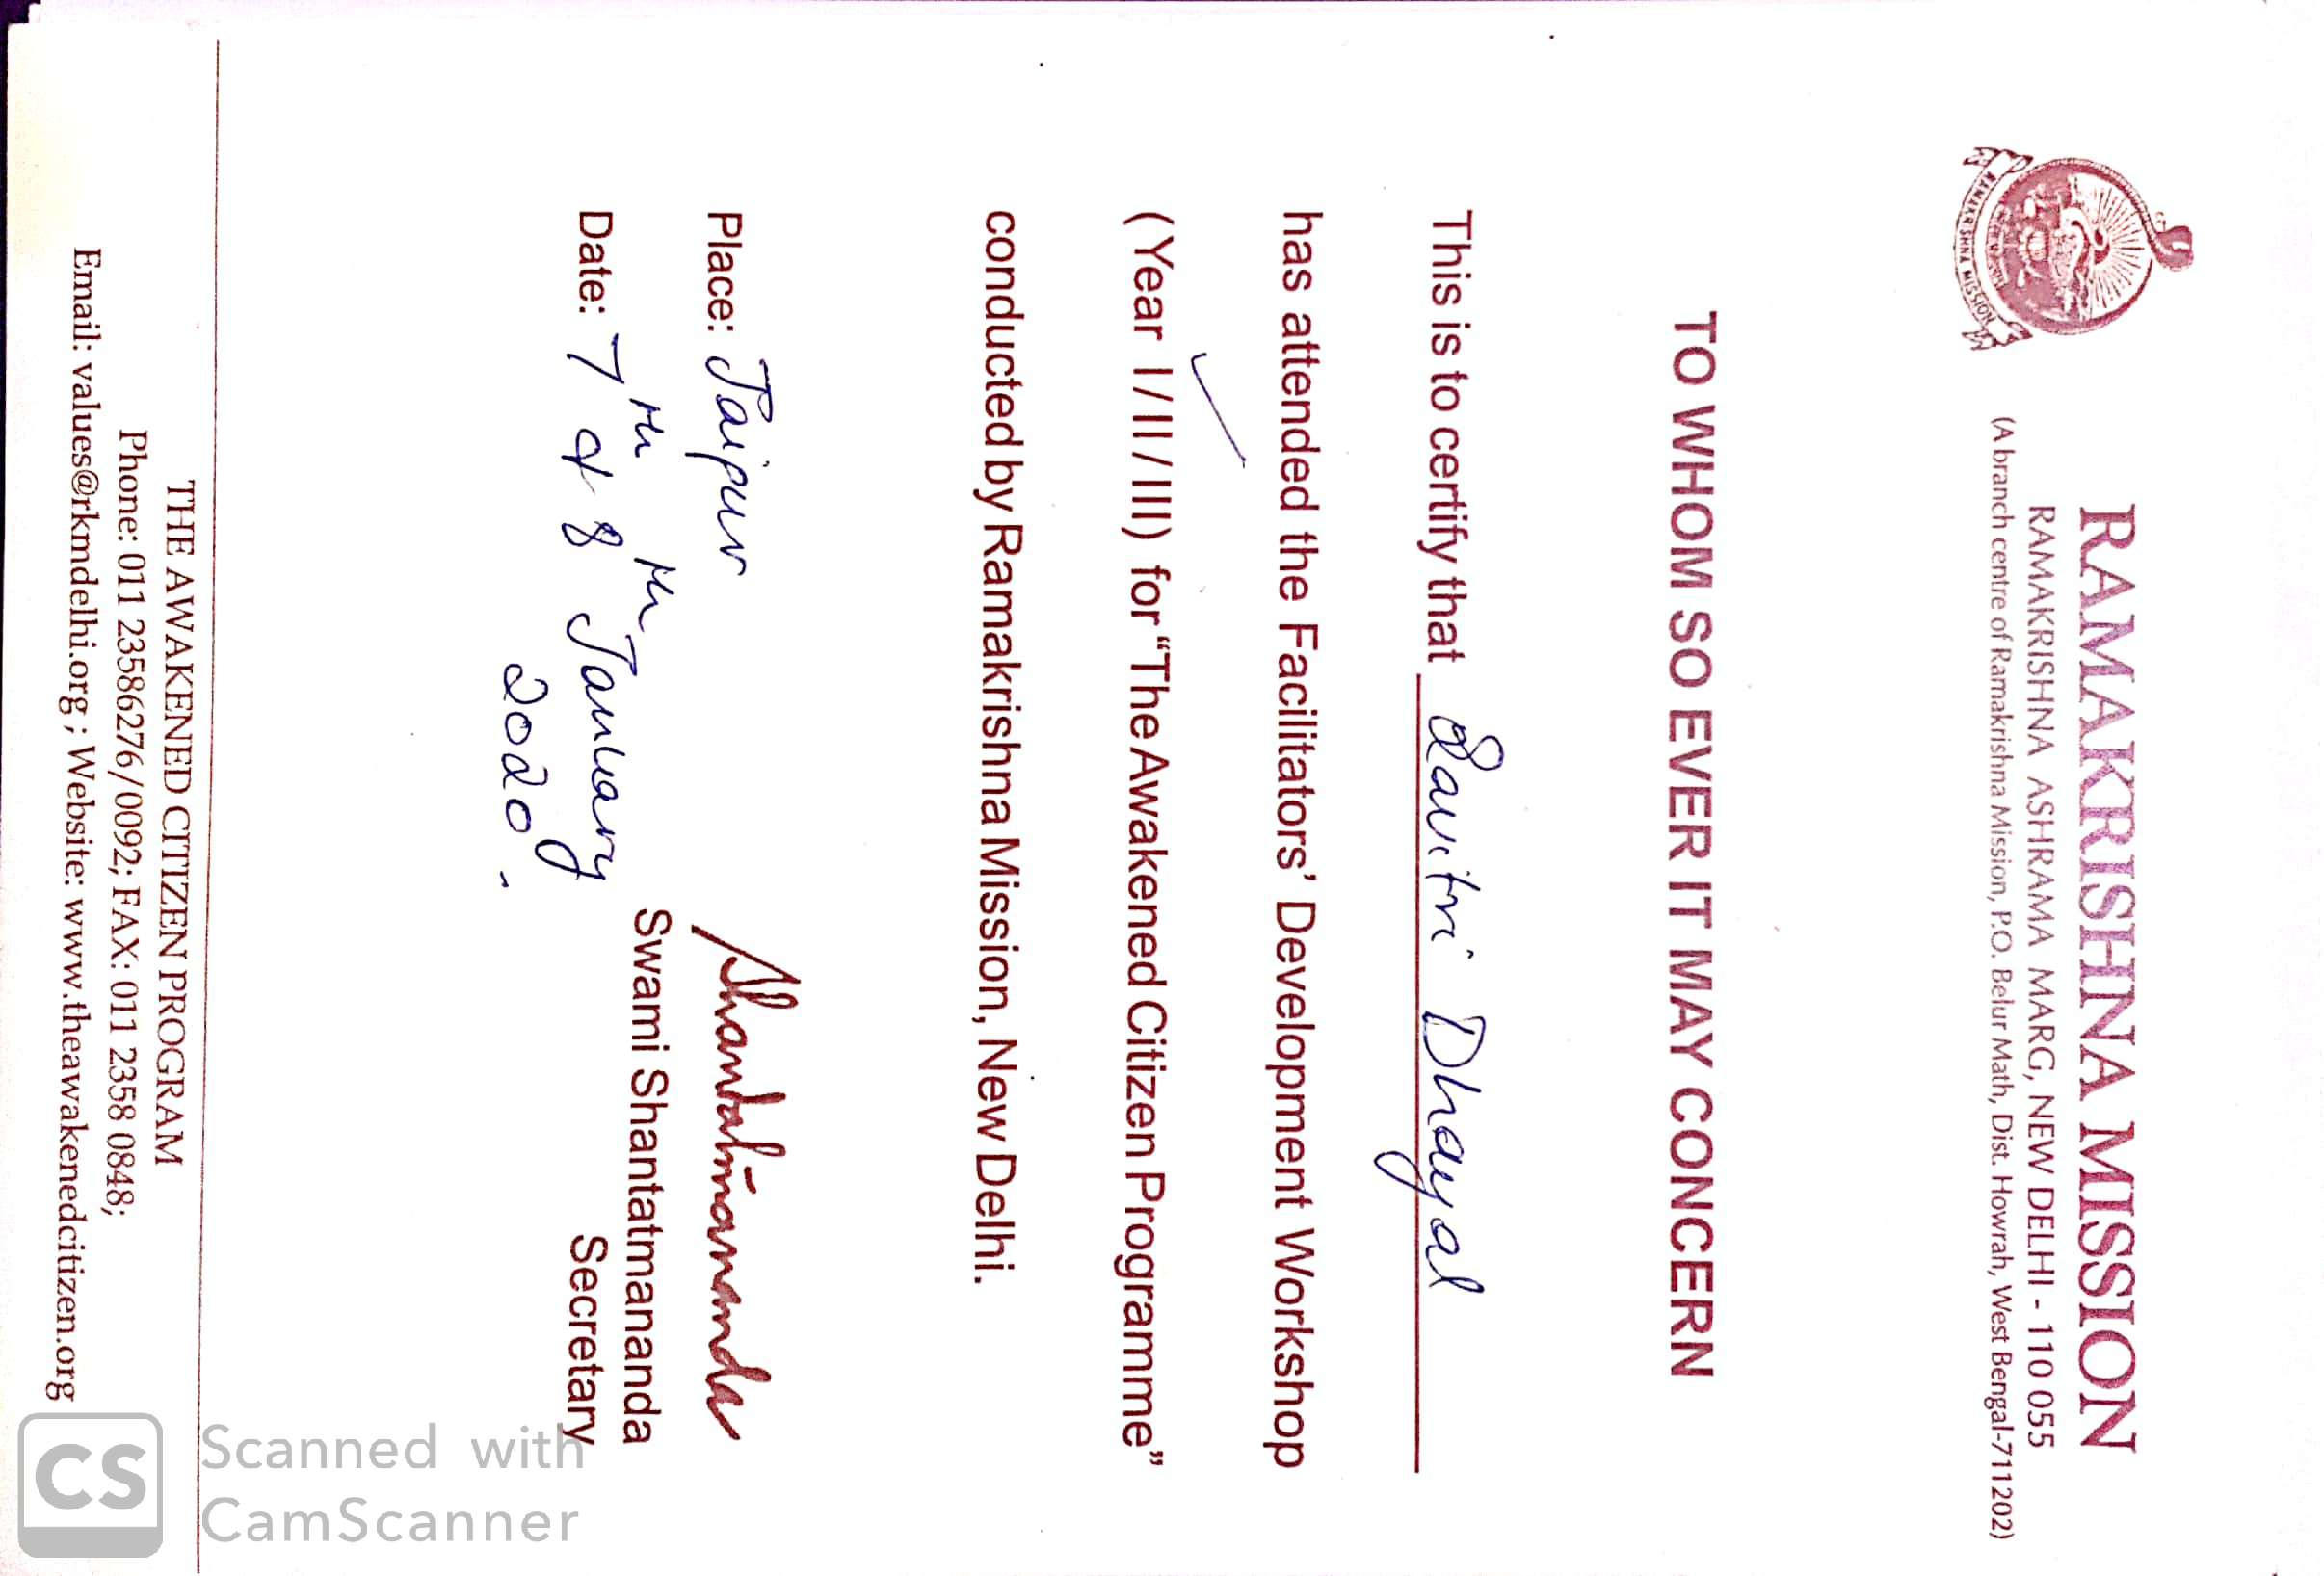 RAMAKRISHNA MISSION
RAMAKRISHNA ASHRAMA MARG, NEW DELHI - 110 055
(A branch centre of Ramakrishna Mission, P.O. Belur Math, Dist. Howrah, West Bengal-711202)
RAMAKRISHNA MISSION
TO WHOM SO EVER IT MAY CONCERN
This is to certify that Savitri Dhayal
has attended the Facilitators' Development Workshop
(Year I / II / III) for “The Awakened Citizen Programme”
conducted by Ramakrishna Mission, New Delhi.
Place: Jaipur
Date: 7th & 8th January
2020.
Shantatmananda
Swami Shantatmananda
Secretary
THE AWAKENED CITIZEN PROGRAM
Phone: 011 23586276/0092; FAX: 011 2358 0848;
Email: values@rkmdelhi.org ; Website: www.theawakenedcitizen.org
CS
Scanned with
CamScanner